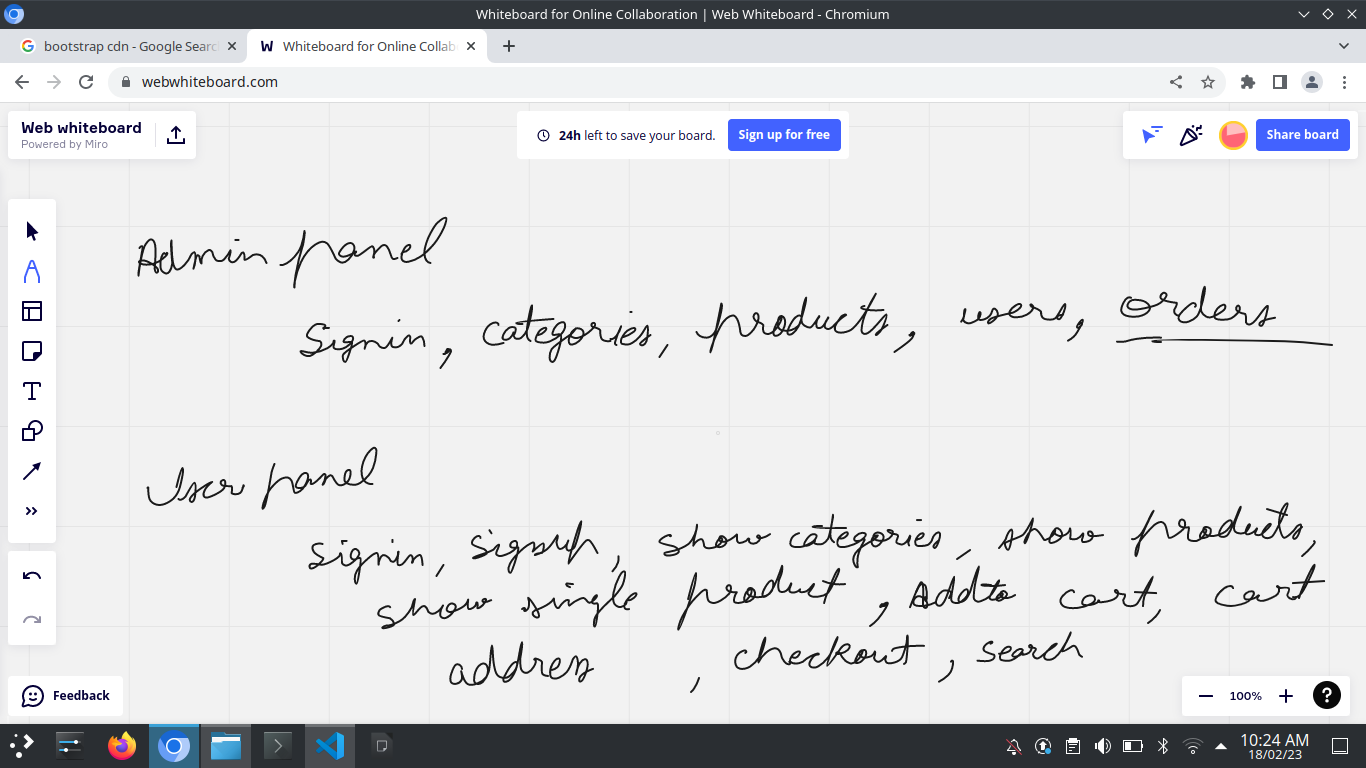 Whiteboard for Online Collaboration | Web Whiteboard - Chromium
bootstrap cdn - Google Searc
Whiteboard for Online Collab
webwhiteboard.com
Web whiteboard
Powered by Miro
24h left to save your board.
Sign up for free
Share board
Admin panel
Signin, categories, products, users, orders
User panel
signin, signup, show categories, show products,
show single product, Add to cart, cart
address, checkout, search
Feedback
100%
?
10:24 AM
18/02/23